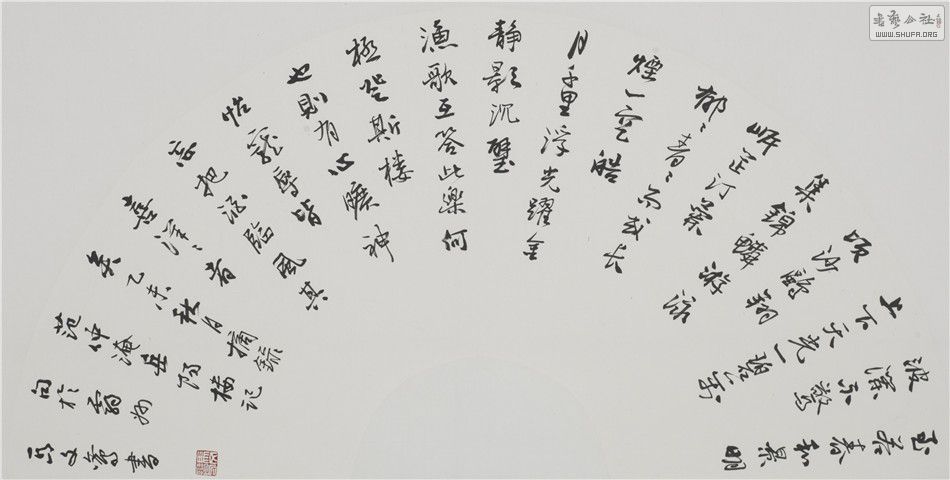 至若春和景明
波瀾不驚
上下天光一碧萬
頃沙鷗翔
集錦鱗游泳
岸芷汀蘭
郁々青々而或長
煙一空皓
月千里浮光躍金
靜影沉璧
漁歌互答此樂何
極登斯楼
也則有心曠神
怡寵辱皆
忘把酒臨風其
喜洋々者
矣乙未秋月摘錄
范仲淹岳陽樓記
句於
書
書藝公社
WWW.SHUFA.ORG